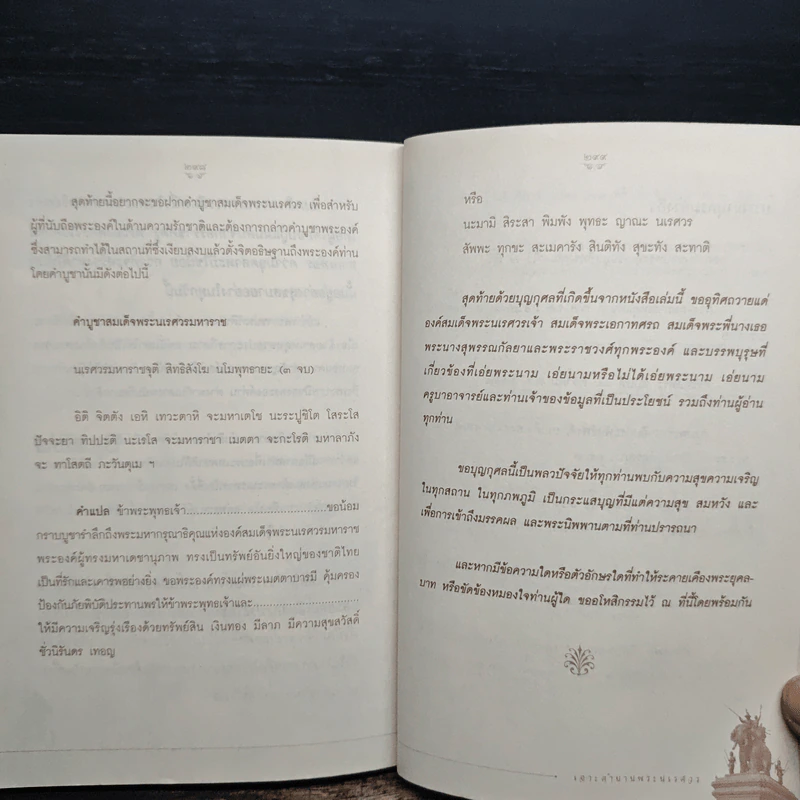 ๒๙๘
สุดท้ายนี้อยากจะขอฝากคำบูชาสมเด็จพระนเรศวร เพื่อสำหรับ
ผู้ที่นับถือพระองค์ในด้านความรักชาติและต้องการกล่าวคำบูชาพระองค์
ซึ่งสามารถทำได้ในสถานที่ซึ่งเงียบสงบแล้วตั้งจิตอธิษฐานถึงพระองค์ท่าน
โดยคำบูชานั้นมีดังต่อไปนี้
คำบูชาสมเด็จพระนเรศวรมหาราช
นเรศวรมหาราชจุติ สิทธิสังโฆ นโมพุทธายะ (๓ จบ)
อิติ จิตตัง เอหิ เทวะตาหิ จะมหาเตโช นะระปูชิโต โสระโส
ปัจจะยา ทิปปะติ นะเรโส จะมหาราชา เมตตา จะกะโรติ มหาลาภัง
จะ ทาโสตถี ภะวันตุเม ฯ
คำแปล ข้าพระพุทธเจ้า...............................................ขอน้อม
กราบบูชารำลึกถึงพระมหากรุณาธิคุณแห่งองค์สมเด็จพระนเรศวรมหาราช
พระองค์ผู้ทรงมหาเดชานุภาพ ทรงเป็นทรัพย์อันยิ่งใหญ่ของชาติไทย
เป็นที่รักและเคารพอย่างยิ่ง ขอพระองค์ทรงแผ่พระเมตตาบารมี คุ้มครอง
ป้องกันภัยพิบัติประทานพรให้ข้าพระพุทธเจ้าและ...................................
ให้มีความเจริญรุ่งเรืองด้วยทรัพย์สิน เงินทอง มีลาภ มีความสุขสวัสดิ์
ชั่วนิรันดร เทอญ
๒๙๙
หรือ
นะมามิ สิระสา พิมพัง พุทธะ ญาณะ นเรศวร
สัพพะ ทุกขะ สะเมคารัง สินติทัง สุขะทัง สะทาติ
สุดท้ายด้วยบุญกุศลที่เกิดขึ้นจากหนังสือเล่มนี้ ขออุทิศถวายแด่
องค์สมเด็จพระนเรศวรเจ้า สมเด็จพระเอกาทศรถ สมเด็จพระพี่นางเธอ
พระนางสุพรรณกัลยาและพระราชวงศ์ทุกพระองค์ และบรรพบุรุษที่
เกี่ยวข้องที่เอ่ยพระนาม เอ่ยนามหรือไม่ได้เอ่ยพระนาม เอ่ยนาม
ครูบาอาจารย์และท่านเจ้าของข้อมูลที่เป็นประโยชน์ รวมถึงท่านผู้อ่าน
ทุกท่าน
ขอบุญกุศลนี้เป็นพลวปัจจัยให้ทุกท่านพบกับความสุขความเจริญ
ในทุกสถาน ในทุกภพภูมิ เป็นกระแสบุญที่มีแต่ความสุข สมหวัง และ
เพื่อการเข้าถึงมรรคผล และพระนิพพานตามที่ท่านปรารถนา
และหากมีข้อความใดหรือตัวอักษรใดที่ทำให้ระคายเคืองพระยุคล-
บาท หรือขัดข้องหมองใจท่านผู้ใด ขออโหสิกรรมไว้ ณ ที่นี้โดยพร้อมกัน
เล่าตำนานพระนเรศวร